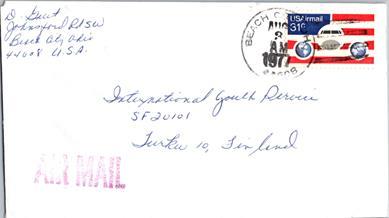 D. Grut
Johnsford Rd SW
Beach City, Ohio
44608 U.S.A.
BEACH C
AUG
3
AM
1977
44608
USAirmail
31c
International Youth Service
SF 20101
Turku 10, Finland
AIR MAIL